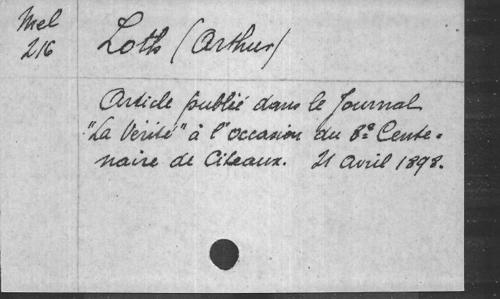 Mel
216
Loth (Arthur)
Article publié dans le Journal
"La Vérité" à l'occasion du 8e Cente-
naire de Citeaux. 21 Avril 1898.